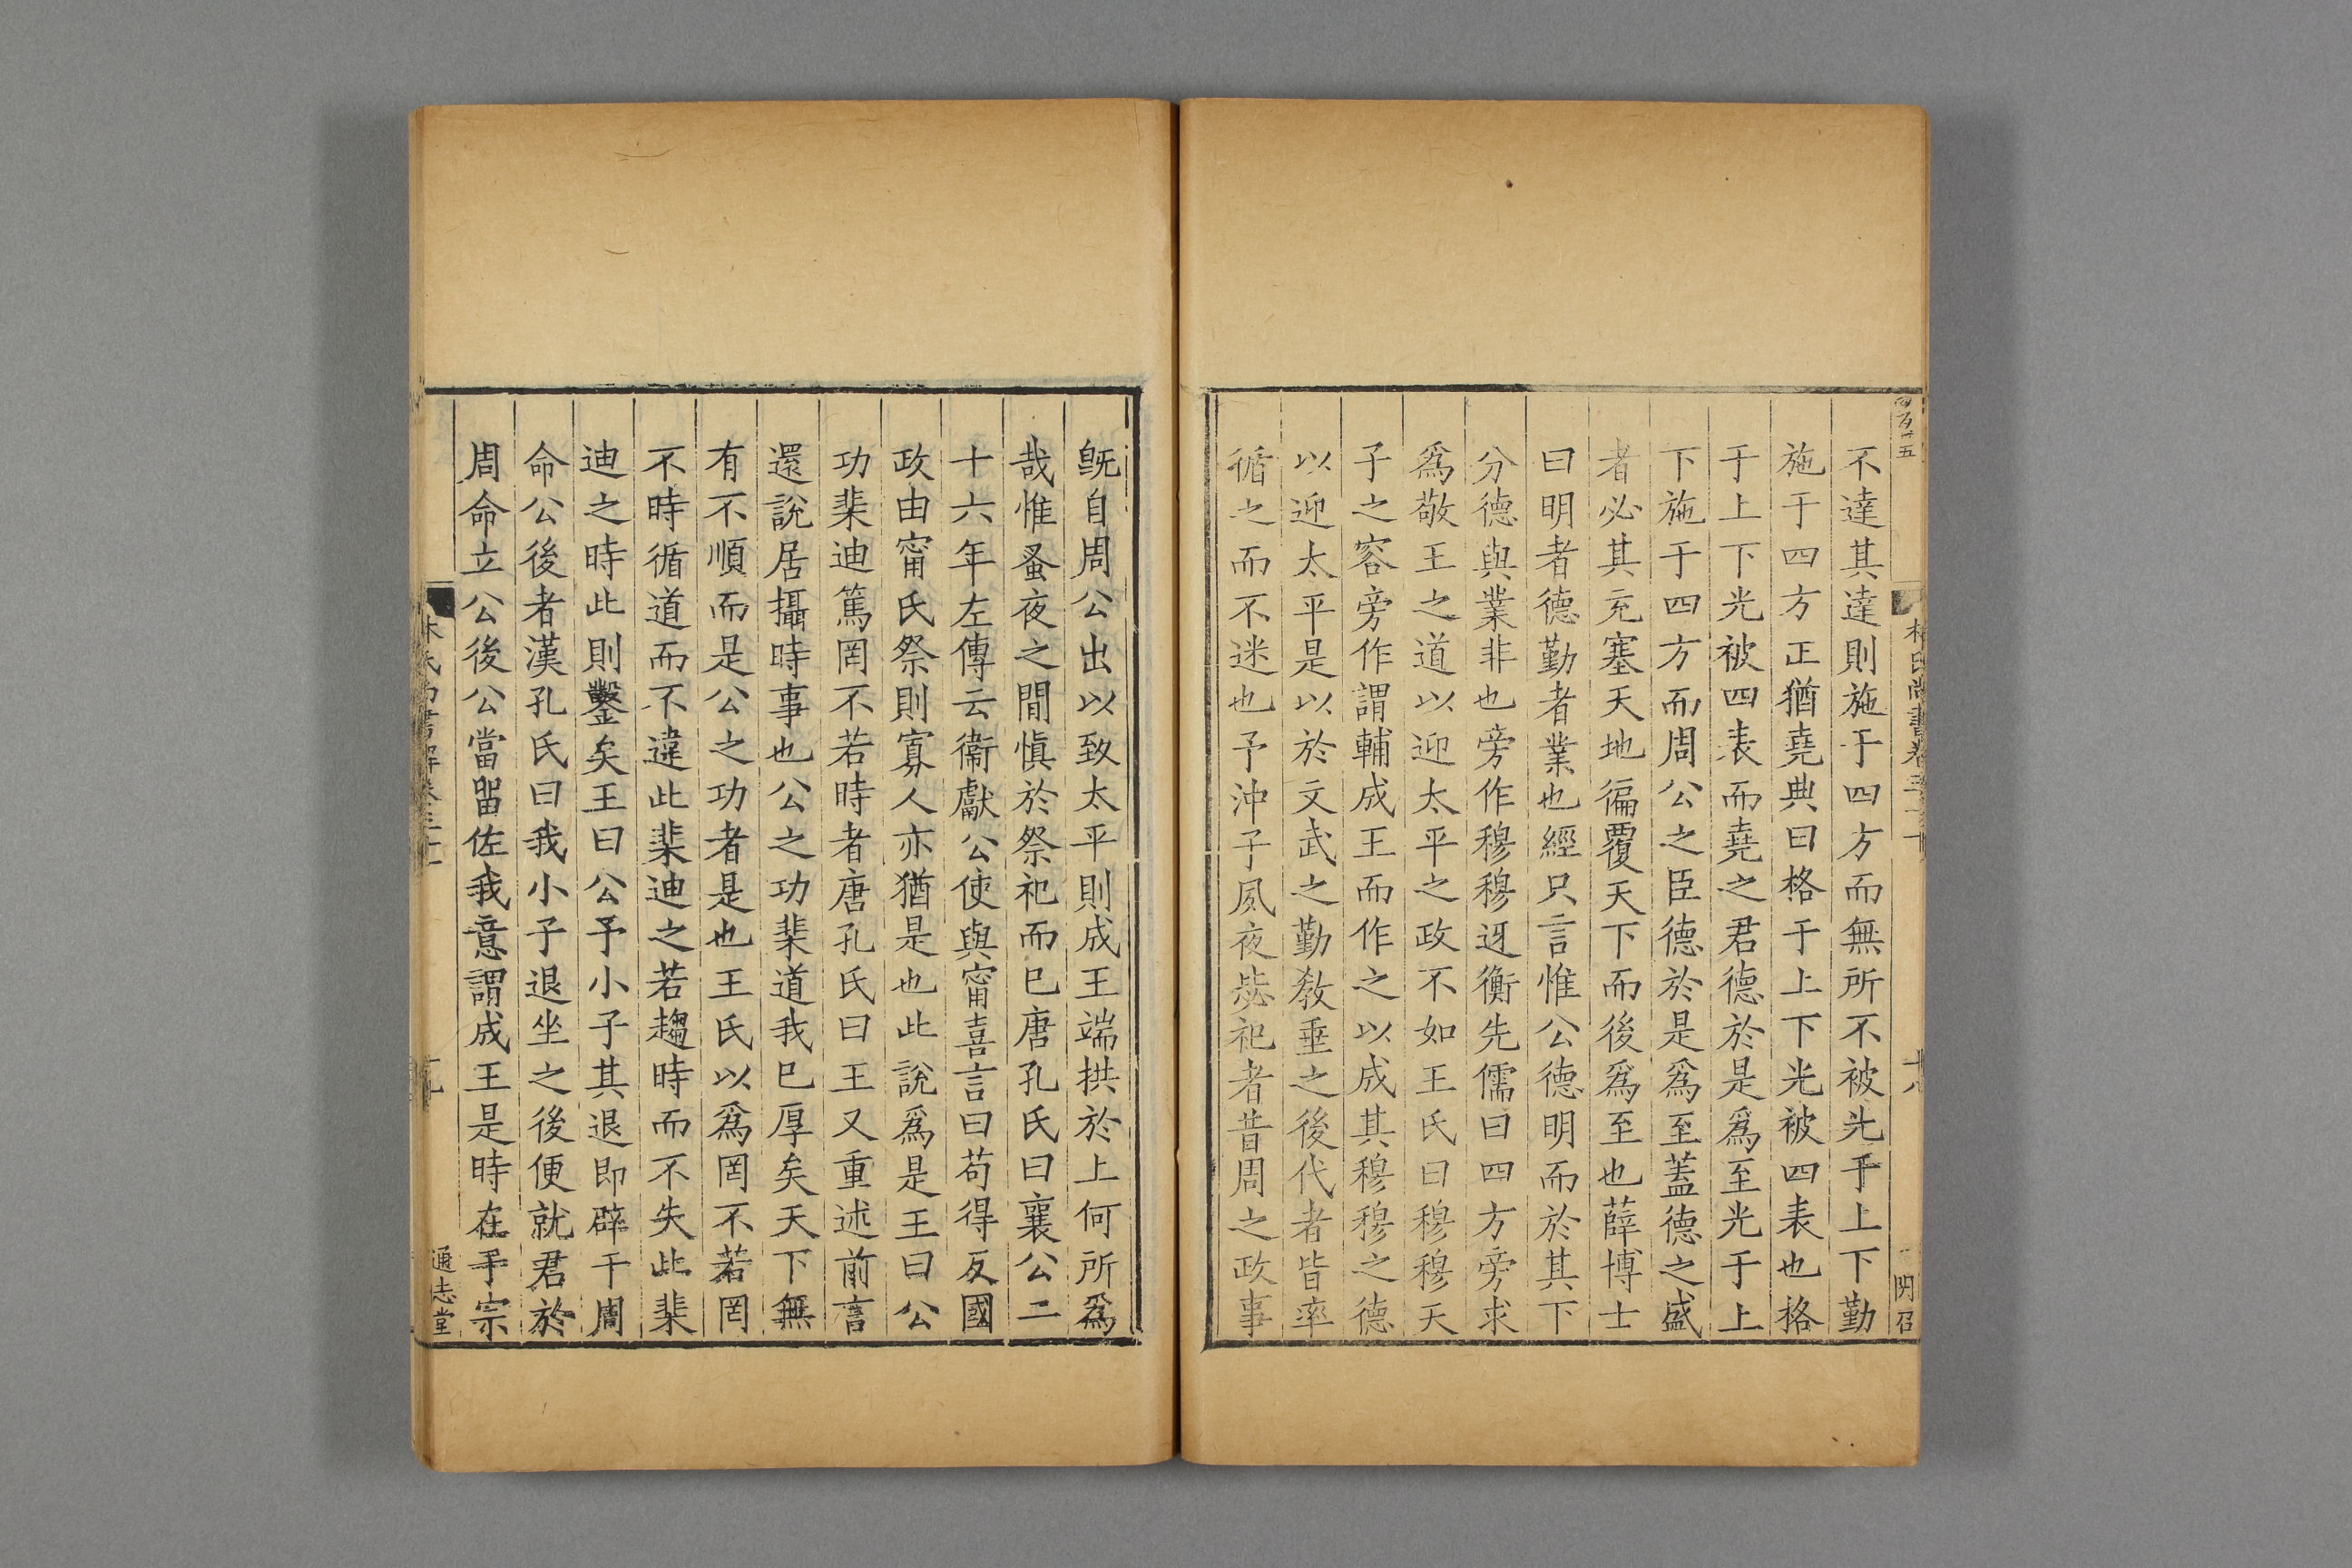 不達其達則施于四方而無所不被光于上下勤
施于四方正猶堯典曰格于上下光被四表也格
于上下光被四表而堯之君德於是爲至光于上
下施于四方而周公之臣德於是爲至蓋德之盛
者必其充塞天地徧覆天下而後爲至也薛博士
曰明者德勤者業也經只言惟公德明而於其下
分德與業非也旁作穆穆迓衡先儒曰四方旁求
爲敬王之道以迎太平之政不如王氏曰穆穆天
子之容旁作謂輔成王而作之以成其穆穆之德
以迎太平是以於文武之勤敎垂之後代者皆率
循之而不迷也予沖子夙夜毖祀者昔周之政事
旣自周公出以致太平則成王端拱於上何所爲
哉惟蚤夜之間愼於祭祀而已唐孔氏曰襄公二
十六年左傳云衞獻公使與甯喜言曰苟得反國
政由甯氏祭則寡人亦猶是也此說爲是王曰公
功棐迪篤罔不若時者唐孔氏曰王又重述前言
還說居攝時事也公之功棐道我已厚矣天下無
有不順而是公之功者是也王氏以爲罔不若罔
不時循道而不違此棐迪之若趨時而不失此棐
迪之時此則鑿矣王曰公予小子其退即辟于周
命公後者漢孔氏曰我小子退坐之後便就君於
周命立公後公當留佐我意謂成王是時在乎宗
林氏尚書解卷三十一
十九
通志堂